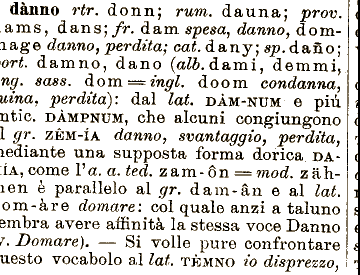 dànno rtr. donn; rum. dauna; prov.
ams, dans; fr. dam spesa, danno, dom-
mage danno, perdita; cat. dany; sp. daño;
ort. damno, dano (alb. dami, demmi,
ng. sass. dom = ingl. doom condanna,
uina, perdita): dal lat. DÀM-NUM e più
ntic. DÀMPNUM, che alcuni congiungono
l gr. ZÊM-ÍA danno, svantaggio, perdita,
nediante una supposta forma dorica DA-
ÍA, come l'a. a. ted. zam-ôn = mod. zäh-
nen è parallelo al gr. dam-ân e al lat.
om-àre domare: col quale anzi a taluno
embra avere affinità la stessa voce Danno
v. Domare). — Si volle pure confrontare
uesto vocabolo al lat. TÈMNO io disprezzo,